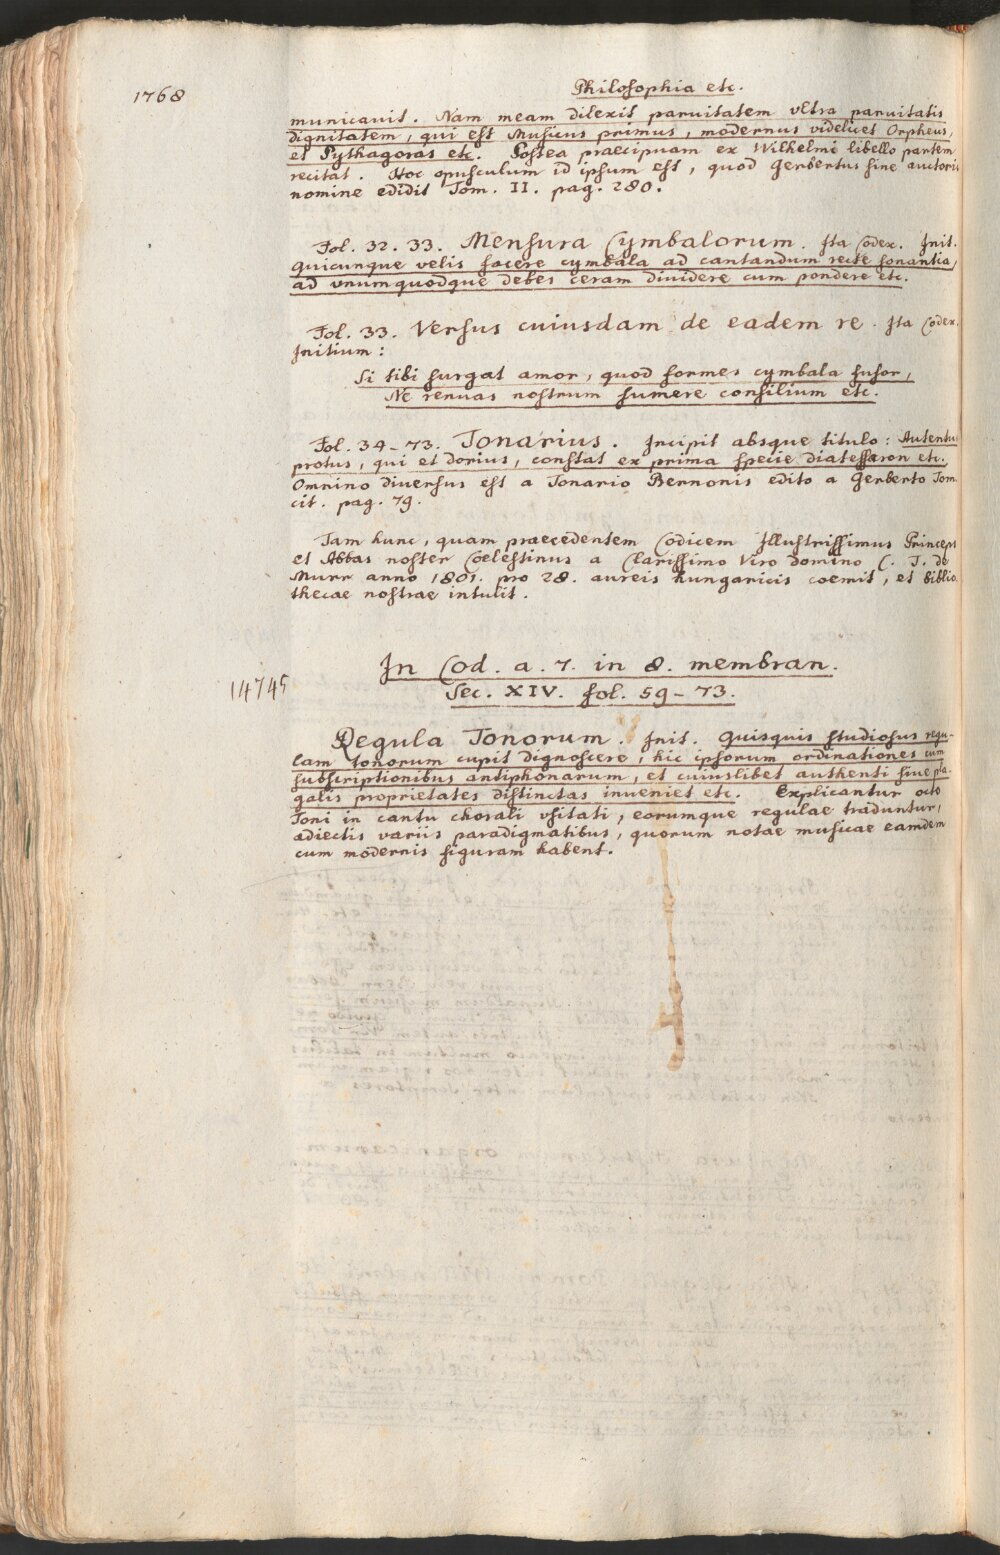 1768
Philosophia etc.
municavit. Nam meam dilexit paruitatem vltra paruitatis
dignitatem, qui est Musicus primus, modernus videlicet Orpheus,
et Pythagoras etc. Postea praecipuam ex Wilhelmi libello partem
recitat. Hoc opusculum id ipsum est, quod Gerbertus sine auctoris
nomine edidit Tom. II. pag. 280.
Fol. 32. 33. Mensura Cymbalorum. Ita Codex. Init.
quicunque velis facere cymbala ad cantandum recte sonantia,
ad vnumquodque debes ceram diuidere cum pondere etc.
Fol. 33. Versus cuiusdam de eadem re. Ita Codex.
Initium:
Si tibi surgat amor, quod formes cymbala fusor,
Ne renuas nostrum sumere consilium etc.
Fol. 34-73. Tonarius. Incipit absque titulo: Autentus
protus, qui et dorius, constat ex prima specie diatessaron etc.
Omnino diuersus est a Tonario Bernonis edito a Gerberto Tom.
cit. pag. 79.
Tam hunc, quam praecedentem Codicem Illustrissimus Princeps
et Abbas noster Coelestinus a Clarissimo Viro domino C. T. de
Murr anno 1801. pro 28. aureis hungaricis coemit, et biblio-
thecae nostrae intulit.
In Cod. a. 7. in 8. membran.
14745
Sec. XIV. fol. 59-73.
Regula Tonorum. Init. Quisquis studiosus regu-
lam tonorum cupit dignoscere, hic ipsorum ordinationes cum
subscriptionibus antiphonarum, et cuiuslibet authenti siue pla-
galis proprietates distinctas inueniet etc. Explicantur octo
Toni in cantu chorali vsitati, eorumque regulae traduntur,
adiectis variis paradigmatibus, quorum notae musicae eamdem
cum modernis figuram habent.